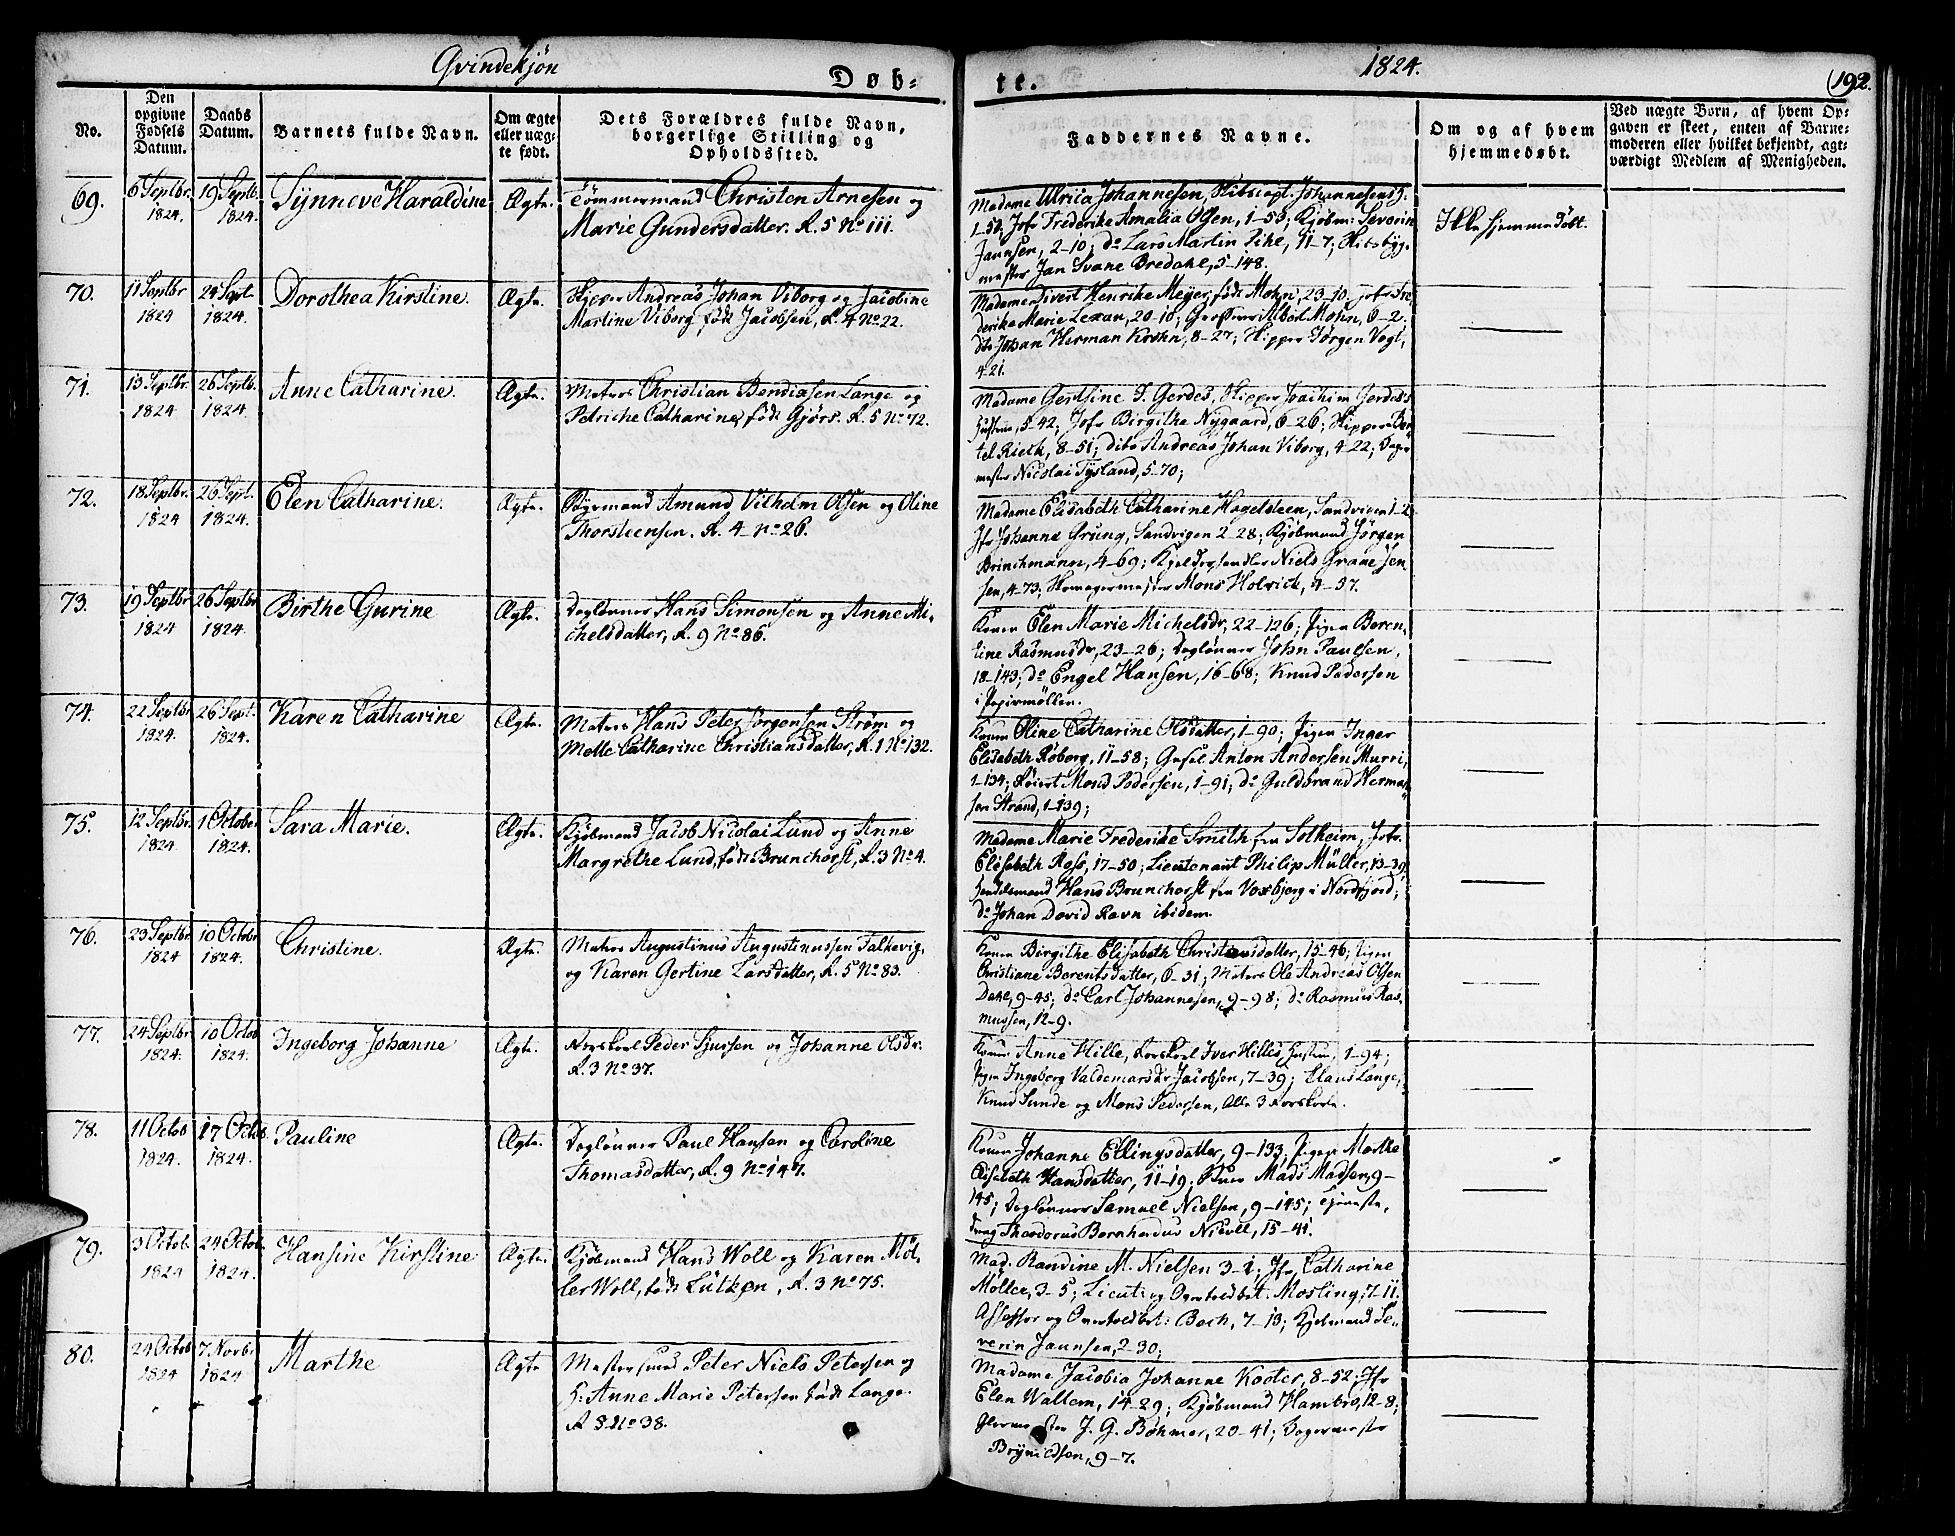 Qvindekjön
Døb-
te.
1824.
192.
No.
Den opgivne Fødsels Datum.
Daabs Datum.
Barnets fulde Navn.
Om ægte eller uægte født.
Dets Forældres fulde Navn, borgerlige Stilling og Opholdssted.
Faddernes Navne.
Om og af hvem hjemmedøbt.
Ved uægte Børn, af hvem Opgaven er skeet, enten af Barnemoderen eller hvilket bekjendt, agtværdigt Medlem af Menigheden.
69.
6 Septbr. 1824.
19 Septb. 1824.
Synneve Haraldine
Ægte.
Tömmermand Christen Arnesen og
Marie Gundersdatter. R. 5 No 111.
Madame Ulrica Johannesen, Skibscapt. Johannesens H.
1-50; Jfr Frederike Amalia Olsen, 1-50; Kjøbm: Severin
Jaunsen, 2-10; do Lars Martin Pihl, 11-7; Skibsbyg-
mester Jan Svane Bredahl, 5-148.
Ikke hjemmedöbt.
70.
11 Septbr 1824
24 Sept. 1824.
Dorothea Kirstine.
Ægte.
Skipper Andreas Johan Viborg og Jacobine
Martine Viborg, födt Jacobsen, R. 4 No 22.
Madame Divert Henrike Meyer, födt Mohn, 23-10; Jfr Fre-
derike Marie Lexau, 20-18; Albert Mohn, 6-2.
dito Johan Herman Krohn, 8-27; Skipper Jørgen Vogt,
4-21.
71.
13 Septbr. 1824
26 Septb. 1824.
Anne Catharine.
Ægte.
Matros Christian Bendixsen Lange og
Petriche Catharine, födt Gjörs. R. 5 No 72.
Madame Gertsine J. Gerdes, Skipper Joachim Gerdes's
Hustru, 5-42; Jfr Birgithe Nygaard, 6-26; Skipper Ber-
tel Rieck, 8-51; dito Andreas Johan Viborg, 4-22; Bager-
mester Nicolai Tysland, 5-70;
72.
18 Septbr. 1824
26 Sept. 1824.
Elen Catharine.
Ægte.
Amund Vilhelm Olsen og Oline
Thorsteensen. R. 4 No 26.
Madame Elisabeth Catharine Hagelsteen, Sandvigen 1-2
Jfr Johanna Grung, Sandvigen 2-28; Kjöbmand Jörgen
Brinchmann, 4-69; Niels Graae Jen
sen, 4-73; Skomagermester Mons Holvick, 4-37.
73.
19 Septbr 1824
26 Septbr 1824.
Birthe Gurine
Ægte.
Daglönner Hans Simonsen og Anne Mi-
chelsdatter, R. 9 No 86.
Konen Elen Marie Michelsdr, 22-126; Pigen Beren-
tine Rasmusdr, 23-26; Daglönner John Paulsen,
18-143; do Engel Hansen, 16-68; Knud Pedersen
i Papirmöllen.
74.
22 Septbr 1824.
26 Sept. 1824.
Karen Catharine
Ægte.
Matros Hans Peter Jörgensen Ström og
Mette Catharine Christiansdatter, R. 1 No 132.
Konen Oline Catharine Olsdatter, 1-90; Pigen Inger
Elisabeth Roberg, 11-58; Gesel Anton Andersen Murri,
1-134; Mons Pedersen, 1-91; do Guldbrand Herman-
sen Strand, 1-139;
75.
12 Septbr. 1824.
1 October 1824.
Sara Marie.
Ægte.
Kjöbmand Jacob Nicolai Lund og Anne
Margrethe Lund, födt Brunchorst, R. 3 No 4.
Madame Marie Frederike Smith fra Solheim, Jfr
Elisabeth Rose, 17-50; Lieutenant Philip Müller, 13-39;
Handelsmand Hans Brunchorst fra Voxbjerg i Nordfjord;
do Johan David Ravn ibidem.
76.
23 Septbr 1824
10 Octobr 1824.
Christine.
Ægte.
Matros Augustinus Augustinussen Falkevig,
og Karen Gertine Larsdatter, R. 5 No 83.
Konen Birgithe Elisabeth Christensdatter, 15-46; Pigen
Christiane Berentsdatter, 6-31; Matros Ole Andreas Olsen
Dahl, 9-45; do Carl Johannesen, 9-98; do Rasmus Ras-
mussen, 12-9.
77.
24 Septbr 1824.
10 Octob 1824.
Ingeborg Johanne
Ægte.
Korskarl Peder Sjursen og Johanne Olsdr.
R. 3 No 37.
Konen Anne Hille, Korskarl Iver Hilles Hustru, 1-94;
Pigen Ingeborg Valdemarsdr Jacobsen, 7-39; Claus Lange,
Knud Sunde og Mons Pedersen, Alle 3 Korskarle.
78.
11 Octob 1824.
17 Octob. 1824.
Pauline
Ægte.
Daglönner Paul Hansen og Caroline
Thomasdatter, R. 9 No 147.
Konen Johanne Ellingsdatter, 9-133; Pigen Marthe
Elisabeth Hansdatter, 11-19; Mads Madsen, 9-
145; Daglönner Samuel Nielsen, 9-145; Tjeneste-
dreng Thordorus Bernhardus Nicoll, 15-41.
79.
3 Octob. 1824
24 Octob. 1824.
Hansine Kirstine
Ægte.
Kjöbmand Hans Woll og Karen Möl-
ler Woll, födt Lütken, R. 3 No 75.
Mad. Randine M. Nielsen 3-1; Jfr Catharine
Möller, 3-5; Lieut: og Mosling, 7-11.
Assessor og Bech, 7-13; Kjöbmand Se-
verin Jaunsen, 2-30;
80.
24 Octob 1824
7 Novb. 1824
Marthe
Ægte
Peter Niels Petersen og
H. Anne Marie Petersen födt Lange.
R 8. No 38.
Madame Jacobia Johanne Koster, 8-52; Jfr
Elen Wallem, 14-29; Kjöbmand Hambro, 12-8;
J. G. Böhmer, 20-41; Bagermester
Brynildsen, 9-7.